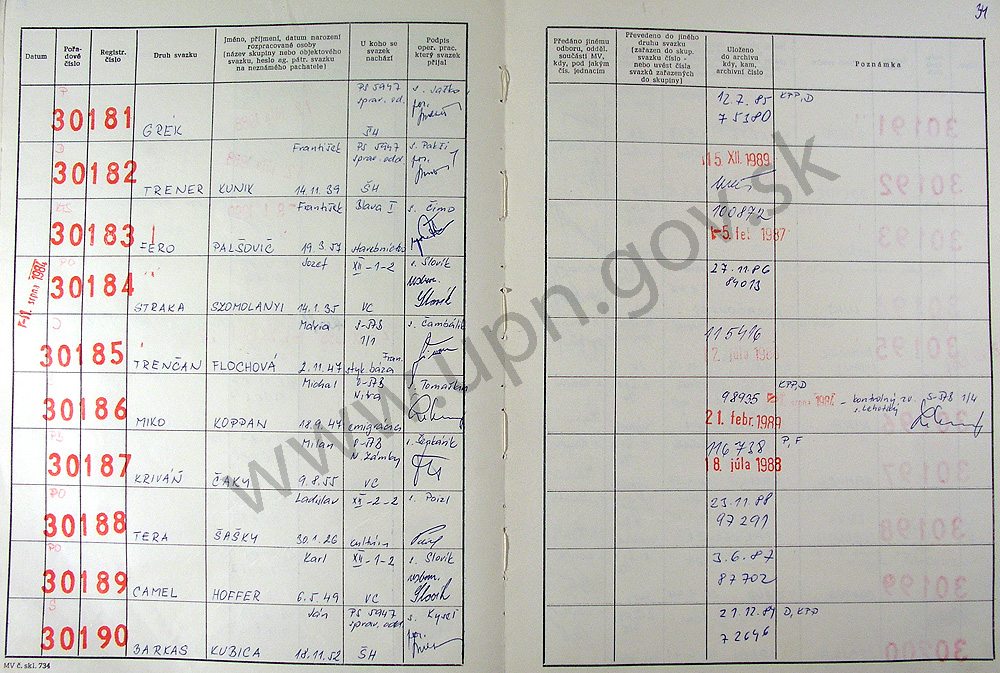 31
Datum
Pořa-
dové
číslo
Registr.
číslo
Druh svazku
Jméno, příjmení, datum narození
rozpracované osoby
(název skupiny nebo objektového
svazku, heslo ag. pátr. svazku
na neznámého pachatele)
U koho se
svazek
nachází
Podpis
oper. prac.
který svazek
přijal
Předáno jinému
odboru, odděl.
součásti MV,
kdy, pod jakým
čís. jednacím
Převedeno do jiného
druhu svazku
(zařazen do skup.
svazku číslo -
nebo uvést čísla
svazků zařazených
do skupiny)
Uloženo
do archivu
kdy, kam,
archivní číslo
Poznámka
P
30181
GREK
PS 5947
správ. od.
ŠH
12.7.85
75380
KPP, D
D
30182
TRENER
František
KUNIK 14.11.39
PS 5947
správ. odd.
ŠH
15. XII. 1989
30183
FERO
František
PALŠOVIČ 19.3.57
Blava I
stavebníctvo
s. Čimo
100872
-5. feb. 1987
srpna 1984
PO
30184
STRAKA
Jozef
SZOMOLANYI 14.1.35
XII-1-2
VC
s. Slovík
Slovík
27.11.86
84013
30185
TRENČAN
Maria
FLOCHOVÁ 2.11.47
S-ŠTB
1/1
Fran.
styk. baza
s. Čambálik
115416
2. júla 1988
30186
MIKO
Michal
KOPPAN 18.9.47
S-ŠTB
Nitra
emigrácia
98935
21. febr. 1989
KPP, D
srpna 1984
- kontrolný zv. S-ŠTB 1/4
s. Lehotský
30187
KRIVÁŇ
Milan
ČÁKY 9.8.55
S-ŠTB
N. Zámky
VC
116738
18. júla 1988
P, F
PO
30188
TERA
Ladislav
ŠAŠKY 30.1.26
XII-2-2
kultúra
23.11.88
97291
PO
30189
CAMEL
Karl
HOFFER 6.5.49
XII-1-2
VC
s. Slovík
Slovík
3.6.87
87702
30190
BARKAS
Ján
KUBICA 18.11.52
PS 5947
správ. odd.
ŠH
21.12.84
72646
D, KPP
MV č. skl. 734
www.upn.gov.sk